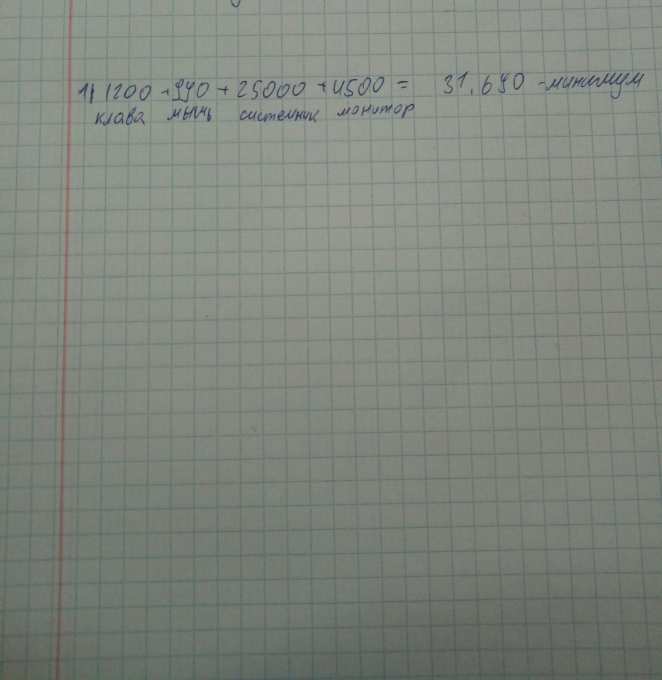 1) 1200 + 990 + 25000 + 4500 = 31.690 - минимум
клава мышь системник монитор